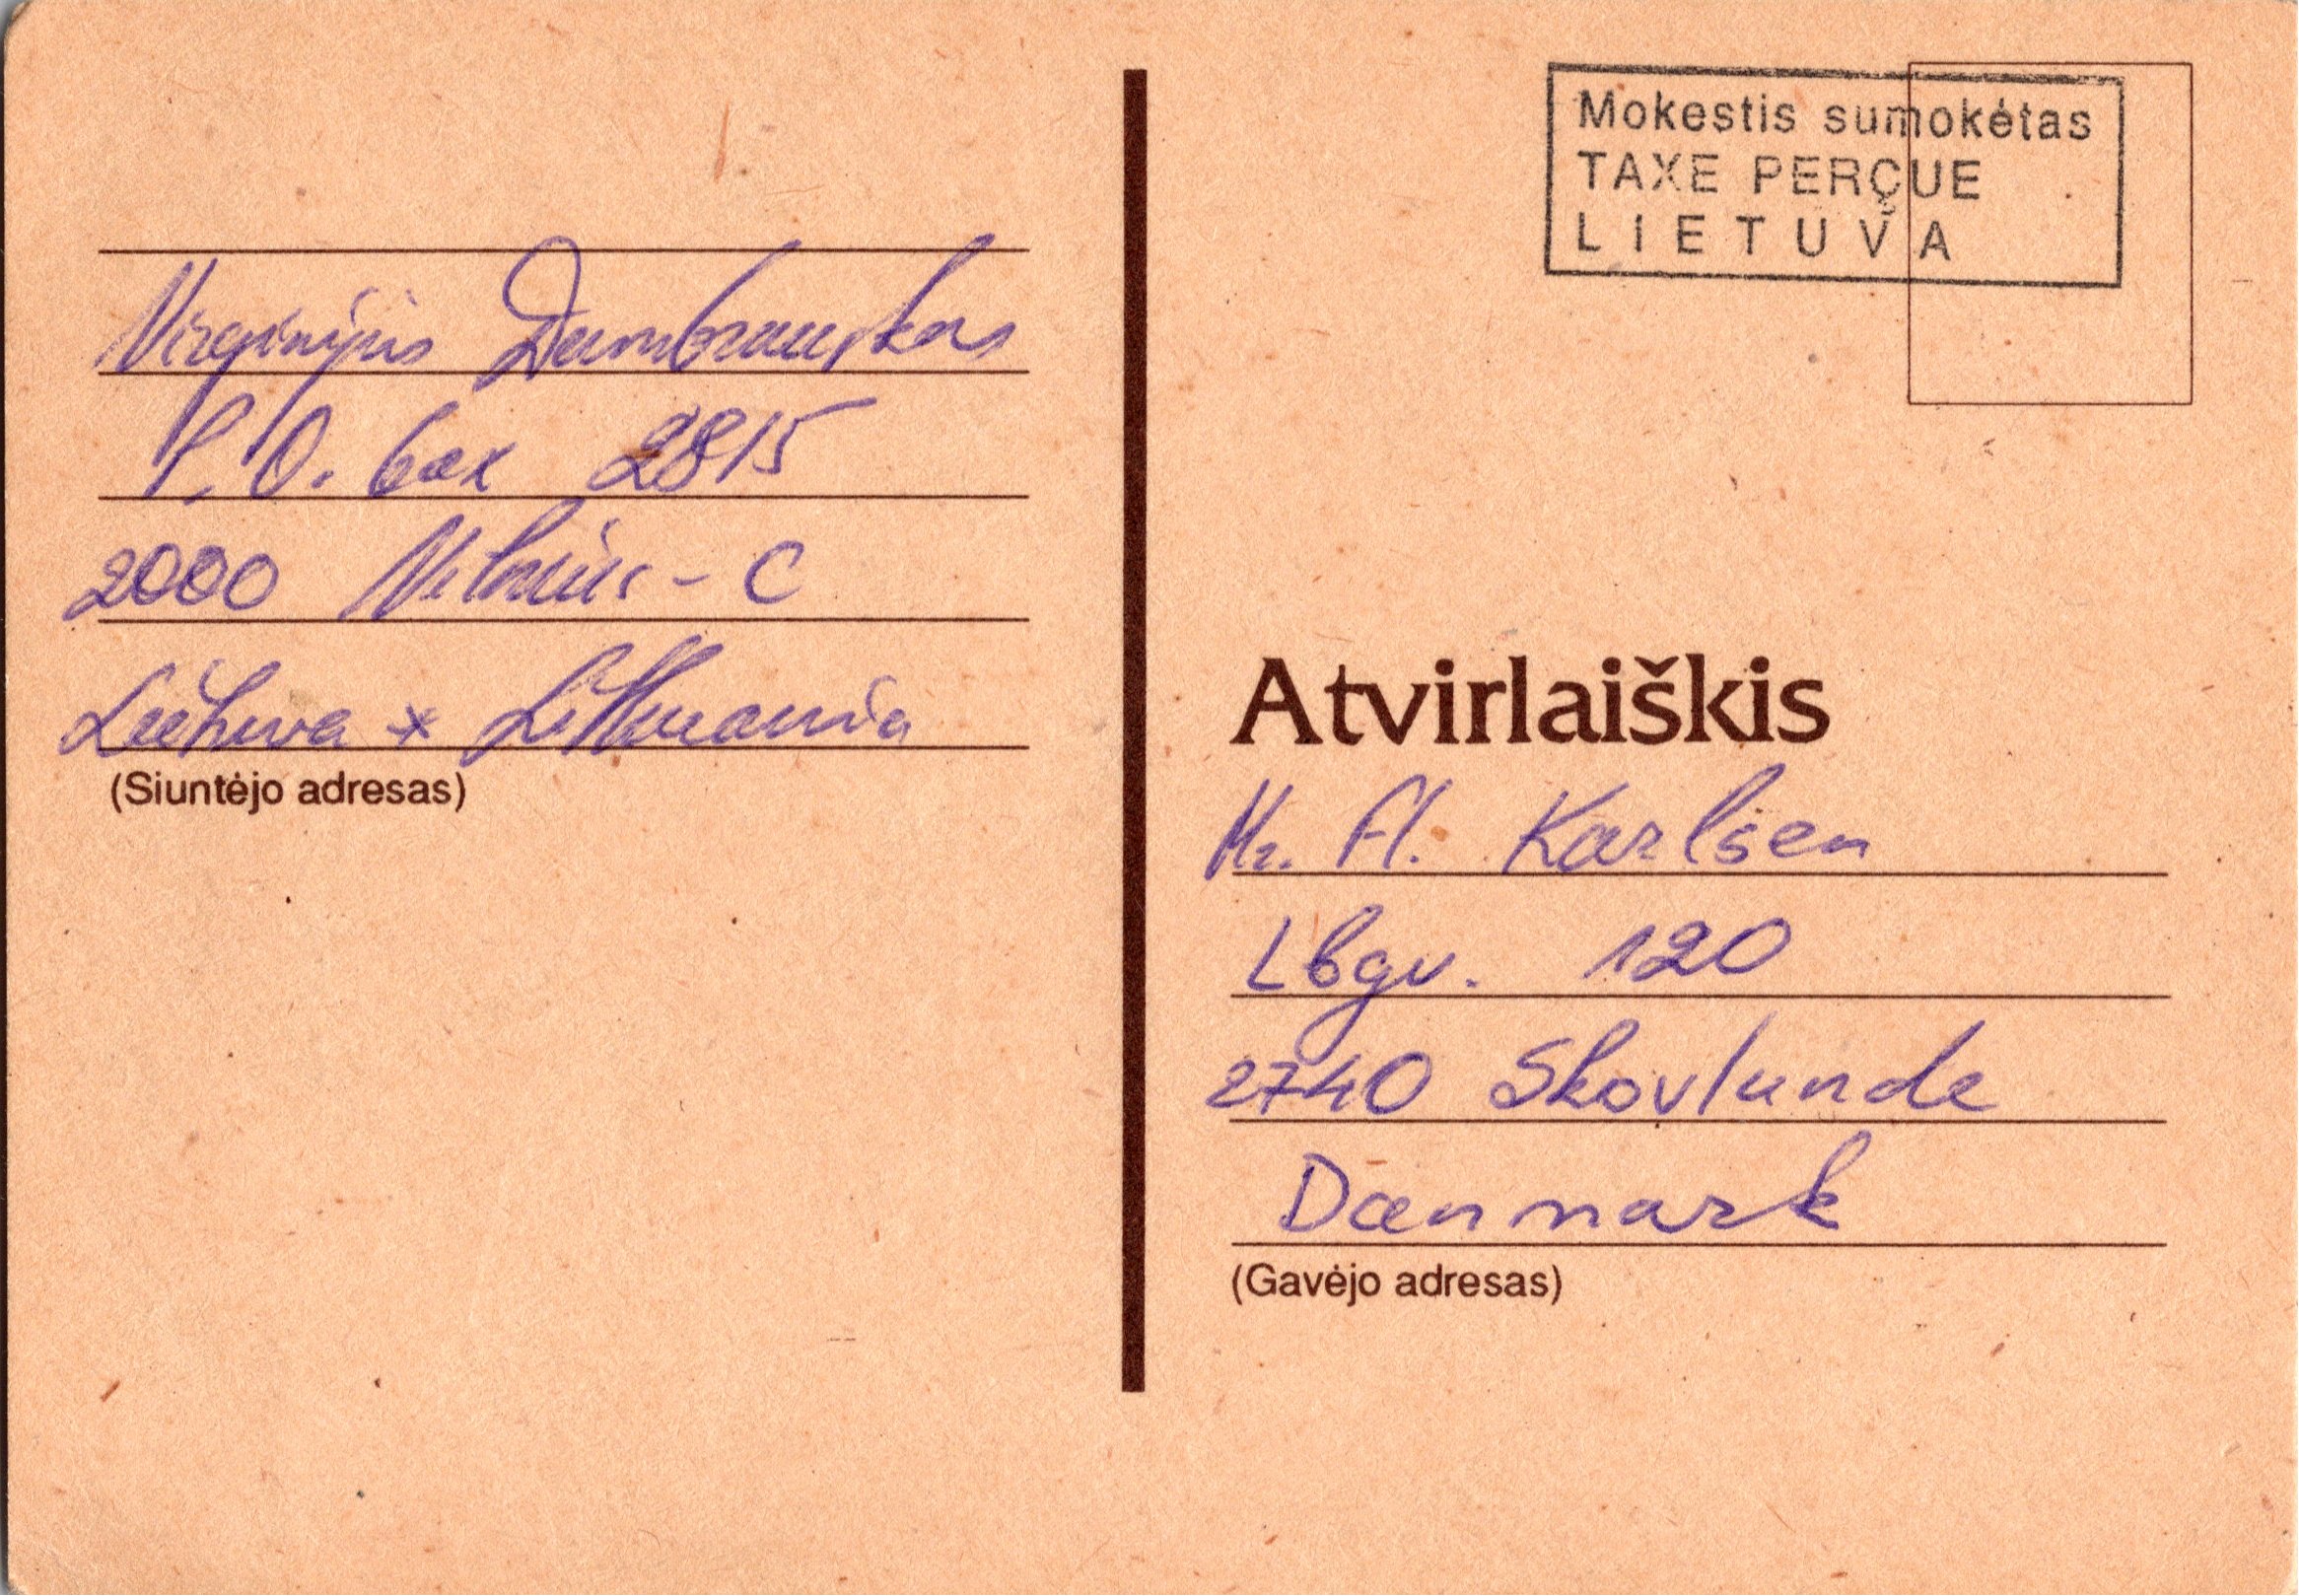 Virginijus Dambrauskas
P.O. box 2815
2000 Vilnius - C
Lietuva * Lithuania
(Siuntėjo adresas)
Mokestis sumokėtas
TAXE PERÇUE
LIETUVA
Atvirlaiškis
Mr. Fl. Karlsen
Lbgv. 120
2740 Skovlunde
Danmark
(Gavėjo adresas)